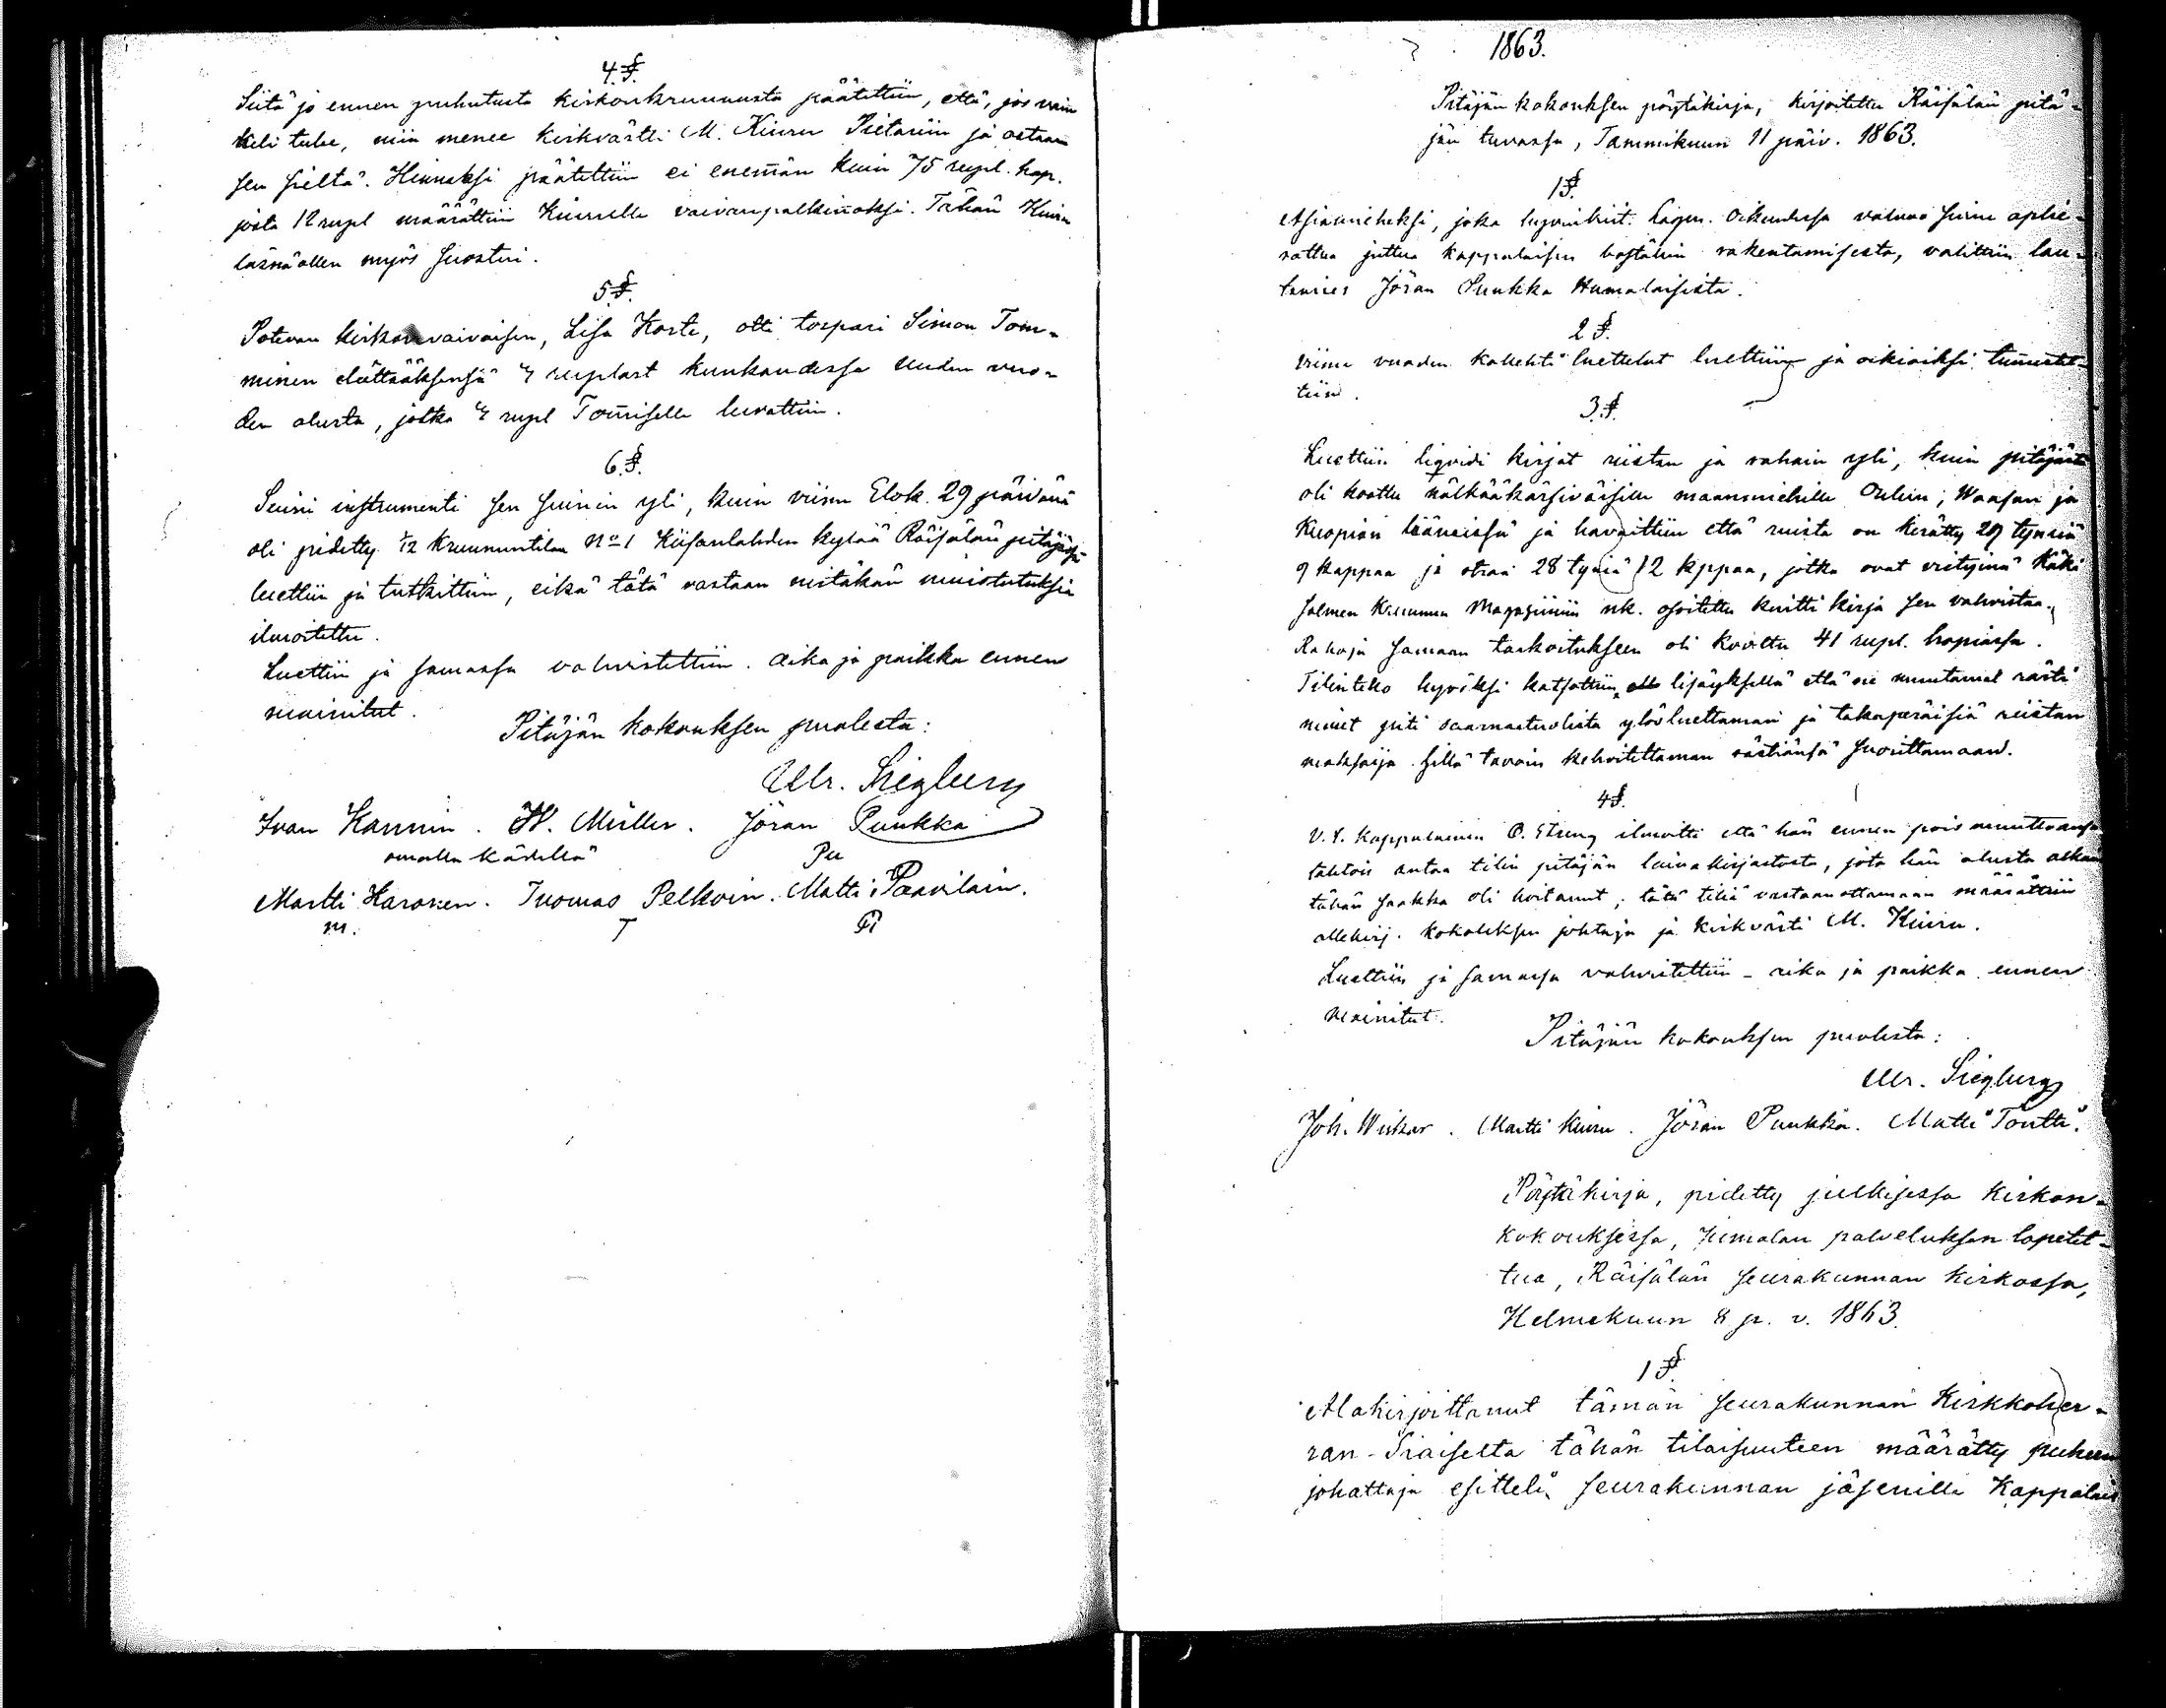 4.§.
Siitä jo ennen puhutusta kirkonkruunusta päätettiin, että, jos vain
keli tulee, niin menee kirkvärtti M. Kiuru Pietariin ja ostaa
sen sieltä. Hinnaksi päätettiin ei enemän kuin 75 rupl. hop.
josta 12 rupl määrättiin Kiurulle vaivanpalkinnoksi. Tähän Kiuru
läsnä ollen myös suostui.
5.§.
Potevan kirkon vaivaisen, Lisa Koste, otti torpari Simon Tom-
minen elättääksensä 4 ruplast kuukaudessa uuden vuo-
den alusta, jotka 4 rupl Tommiselle luvattiin.
6.§.
Seuni instrumenti sen seunin yli, kuin viime Elok. 29 päivänä
oli pidetty 1/12 kruununtilan No 1 Kiisanlahden kylää Räisälän pitäjässä
luettiin ja tutkittiin, eikä tätä vastaan mitäkän muistutuksia
ilmoitettu.
Luettiin ja samassa vahvistettiin. aika ja paikka ennen
mainitut.
Pitäjän kokouksen puolesta:
Ulr. Siegberg
Ivan Kannin. H. Müller. Jöran Puukka
omalla kädellä Pu
Martti Haronen. Tuomas Pelkoin. Matti Paavilain.
m. T
1863.
Pitäjän kokouksen pöytäkirja, kirjoitettu Räisälän pitä-
jän tuvassa, Tammikuun 11 päiv. 1863.
1§.
Asiamieheksi, joka Lagm. oikeudessa
juttua kappalaisen rakentamisesta, valittiin lau-
tamies Jöran Puukka Humalaisista.
2 §.
Viime vuoden luettelut luettiin ja oikiaiksi tunnustet-
tiin.
3.§.
Luettiin liqvidi kirjat riistan ja rahain yli, kuin pitäjästä
oli koottu nälkääkärsiväisille maanmiehille Oulun, Waasan ja
Kuopion lääneissä ja havaittiin että ruista on kerätty 29 tynriä
9 kappaa ja otraa 28 tyniä 12 kppaa, jotka ovat vietynä Käki
salmen Kruunun Magasiiniin nk. osoitettu kuitti kirja sen vahvistaa.
Rahoja samaan tarkoitukseen oli koottu 41 rupl. hopiassa.
Tilinteko hyväksi katsottiin, lisäyksellä että ne muutamat rästi
nimet piti saarnastuolista ylösluettaman ja takaperäisiä riistan
maksajia sillä tavoin kehoitettaman rästiänsä suorittamaan.
4§.
V.t. Kappalainen O. Streng ilmoitti että hän ennen pois muuttoansa
tahtois antaa tilin pitäjän lainakirjastosta, jota hän alusta alkain
tähän saakka oli hoitanut; tätä tiliä vastaanottamaan määrättiin
allekirj. kokouksen johtaja ja kirkvärti M. Kiuru.
Luettiin ja samassa vahvistettiin - aika ja paikka ennen
mainitut.
Pitäjän kokouksen puolesta:
Ulr. Siegberg
Joh. Wiskar. Martti Kiuru. Jöran Puukka. Matti Tontti.
Pöytäkirja, pidetty julkisessa kirkon-
kokouksessa, Jumalan palveluksen lopetet-
tua, Räisälän seurakunnan kirkossa,
Helmekuun 8 p. v. 1863.
1 §.
Alakirjoittanut tämän seurakunnan Kirkkoher-
ran-Siaiselta tähän tilaisuuteen määrätty puheen
johattaja esitteli seurakunnan jäsenille Kappalais